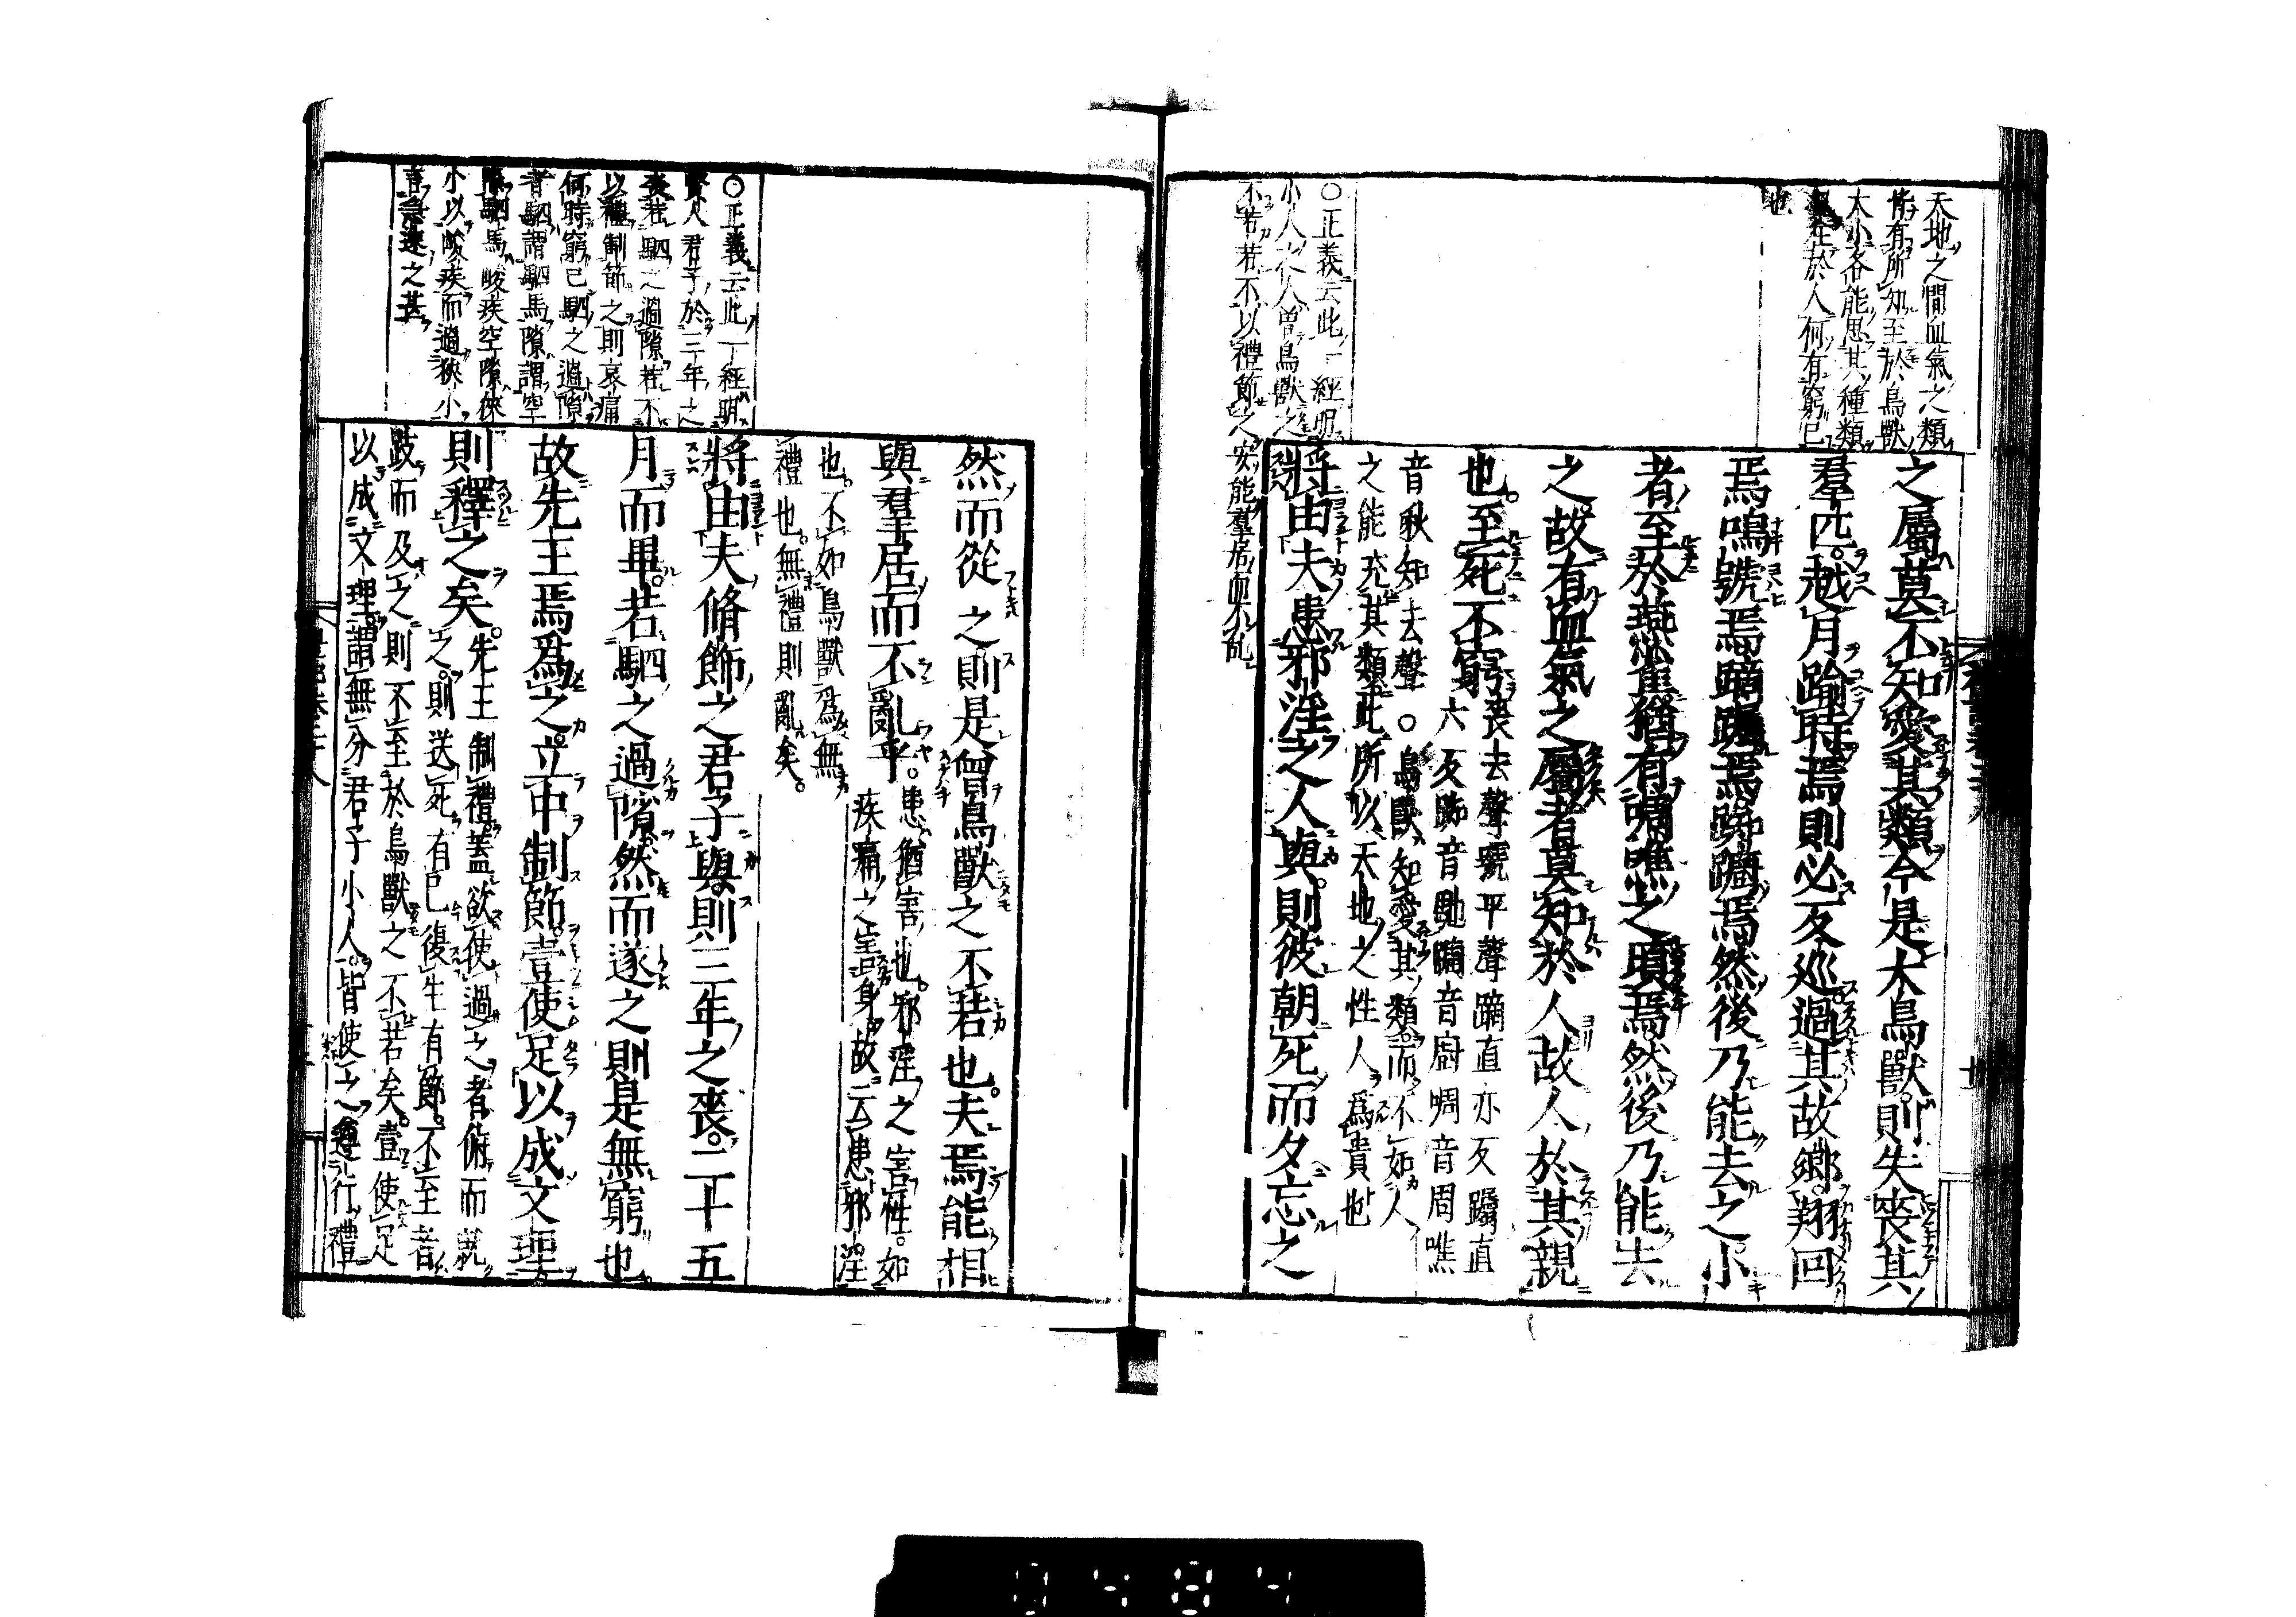 天地之間血氣之類
皆有所知至於鳥獸
大小各能思其種類
至於人何有窮已
也
之屬莫不知愛其類今是大鳥獸則失喪其
羣匹越月踰時焉則必反巡過其故鄉翔回
焉鳴號焉蹢躅焉踟躕焉然後乃能去之小
者至於燕雀猶有啁噍之頃焉然後乃能去
之故有血氣之屬者莫知於人故人於其親
也至死不窮
喪去聲號平聲蹢直亦反躅直
六反踟音馳躕音廚啁音周噍
音秋知去聲○鳥獸知愛其類而不如人
之能充其類此所以天地之性人爲貴也
將由夫患邪淫之人與則彼朝死而夕忘之
○正義云此一經明
小人之人曾鳥獸之
不若若不以禮節之安能羣居而不亂
然而從之則是曾鳥獸之不若也夫焉能相
與羣居而不亂乎
患猶害也邪淫之害性如
疾痛之害身故云患邪淫
也不如鳥獸爲無
禮也無禮則亂矣
○正義云此一經明
賢人君子於三年之
喪若駟之過隙若不
以禮制節之則哀痛
何時窮已駟之過隙
者駟謂駟馬隙謂空
隙駟馬駿疾空隙狹
小以駿疾而過狹小
言急速之甚
將由夫脩飾之君子與則三年之喪二十五
月而畢若駟之過隙然而遂之則是無窮也
故先王焉爲之立中制節壹使足以成文理
則釋之矣
先王制禮蓋欲使過之者俯而就
之則送死有已復生有節不至者
跂而及之則不至於鳥獸之不若矣壹使足
以成文理謂無分君子小人皆使之遵行禮